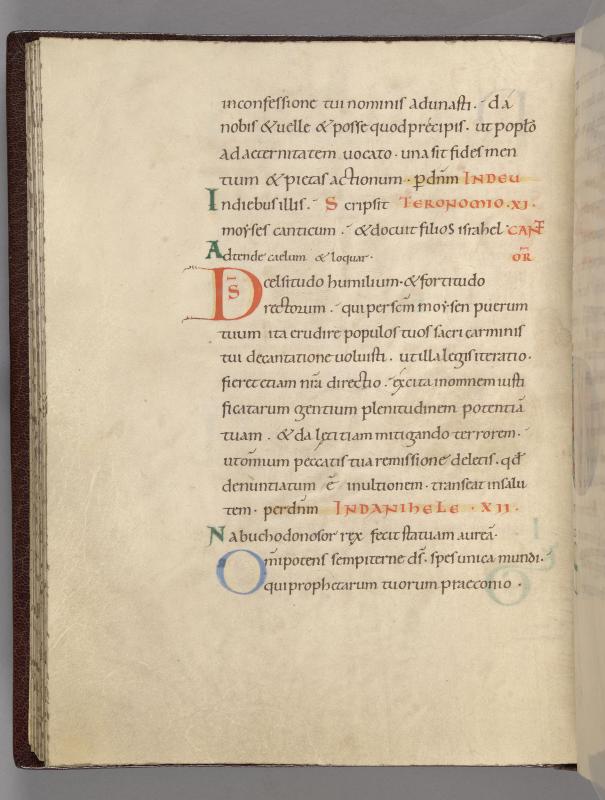 inconfessione tui nominis adunasti. da
nobis & uelle & posse quod precipis. ut poplo
ad aeternitatem uocato. una sit fides men
tium & pietas actionum. p dnm INDEU
Indiebus illis. Scripsit TERONOMIO. XI.
moyses canticum. & docuit filios israhel CANT
Adtende caelum & loquar. OR
DS celsitudo humilium. & fortitudo
rectorum. qui per scm moysen puerum
tuum ita erudire populos tuos sacri carminis
tui decantatione uoluisti. ut illa legis iteratio.
fieret etiam nra directio. excita in omnem iusti
ficatarum gentium plenitudinem potentiā
tuam. & da letitiam mitigando terrorem.
ut omnium peccatis tua remissione deletis. qd
denuntiatum ē inultionem. transeat insalu
tem. per dnm INDANIHELE. XII.
Nabuchodonosor rex fecit statuam aureā.
Omipotens sempiterne ds. spes unica mundi.
qui prophetarum tuorum praeconio.